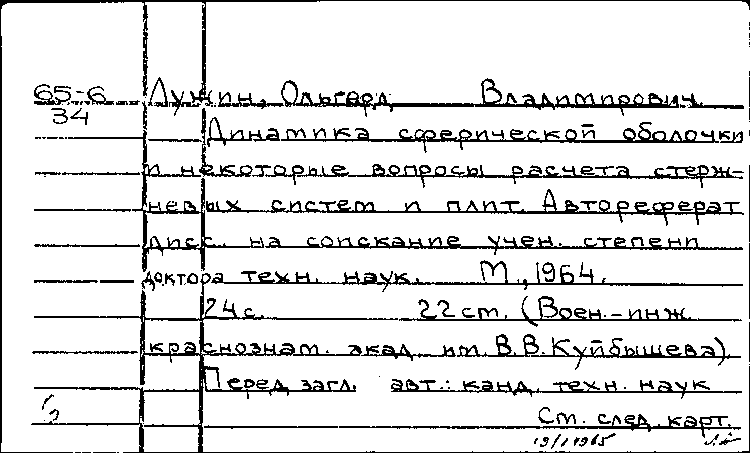 65-6 Лужин, Ольгерд Владимирович.
34
Динамика сферической оболочки
и некоторые вопросы расчета стерж-
невых систем и плит. Автореферат
дисс. на соискание учен. степени
доктора техн. наук. М., 1964.
24 с. 22 см. (Воен.-инж.
краснознам. акад. им. В.В. Куйбышева).
Перед загл. авт.: канд. техн. наук
См. след. карт.
19/I 1965